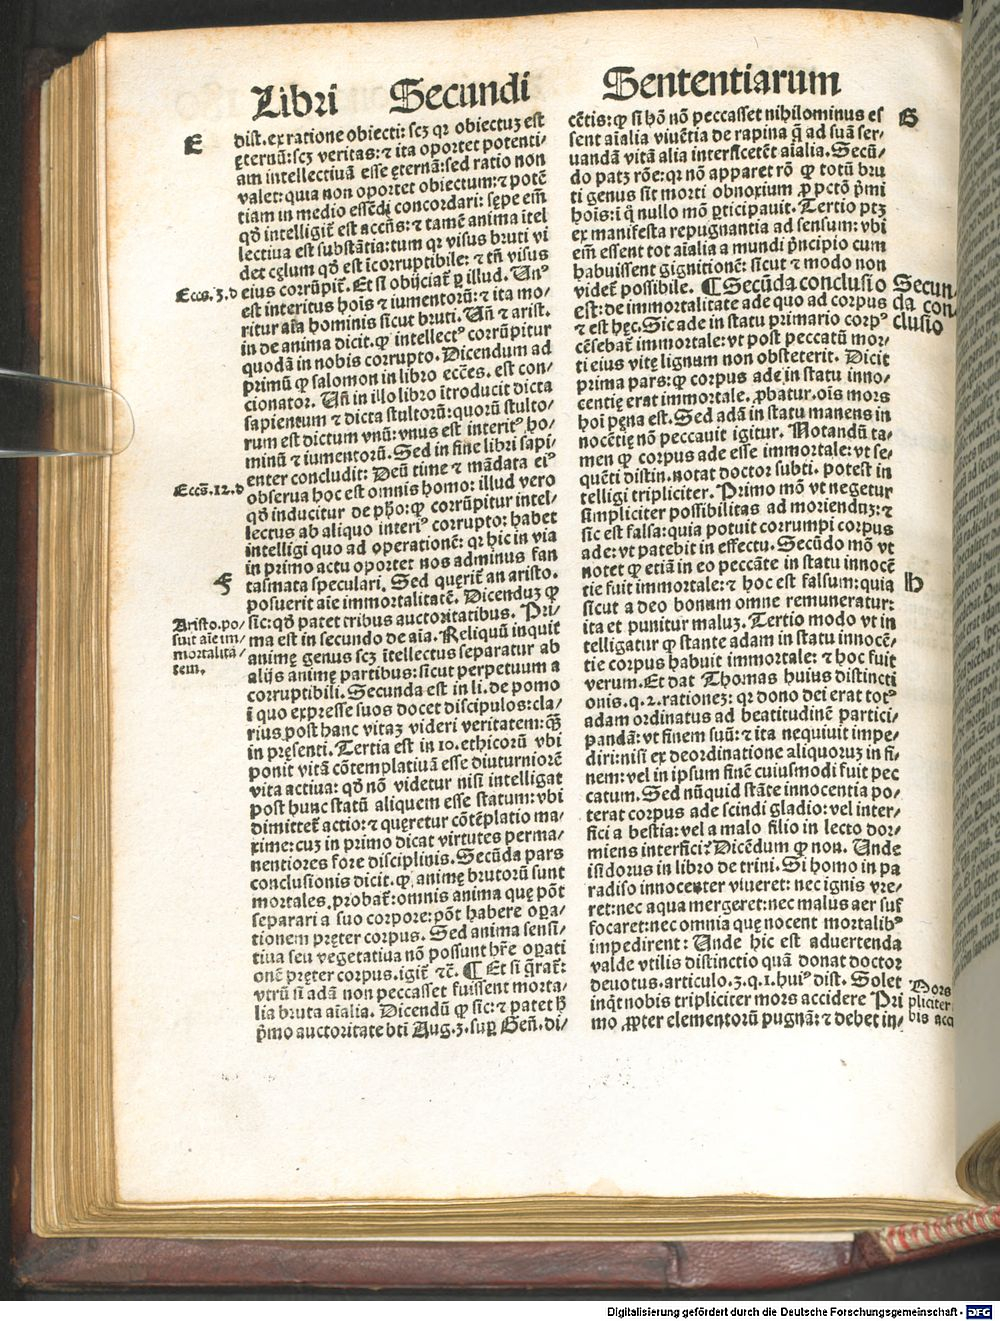 Libri Secundi Sententiarum
E
dist. ex ratione obiecti: scz qꝛ obiectuȝ est
ęternū: scz veritas: ⁊ ita oportet potenti⸗
am intellectiuā esse ęternā: sed ratio non
valet: quia non oportet obiectum: ⁊ potē
tiam in medio essēdi concordari: sępe em̄
qd̄ intelligit̄ est accn̄s: ⁊ tamē anima ītel
lectiua est substātia: tum qꝛ visus bruti vi
det cęlum qd̄ est īcorruptibile: ⁊ tn̄ visus
Eccs. 3. d
eius corrūpit̄. Et si obijciat̄ ꝑ illud. Unꝰ
est interitus hoīs ⁊ iumentorū: ⁊ ita mo⸗
ritur aīa hominis sicut bruti. Uñ ⁊ arist.
in de anima dicit. ꝙ intellectꝰ corrūpitur
quodā in nobis corrupto. Dicendum ad
primū ꝙ salomon in libro eccēs. est con⸗
cionator. Uñ in illo libro ītroducit dicta
sapientum ⁊ dicta stultorū: quorū stulto⸗
rum est dictum vnū: vnus est interitꝰ ho⸗
minū ⁊ iumentorū. Sed in fine libri sapi⸗
enter concludit: Deū time ⁊ mādata eiꝰ
Eccs̄. 12. d
obserua hoc est omnis homo: illud vero
qd̄ inducitur de pħo: ꝙ corrūpitur intel⸗
lectus ab aliquo interiꝰ corrupto: habet
intelligi quo ad operationē: qꝛ hic in via
in primo actu oportet nos adminus fan
F
tasmata speculari. Sed querit̄ an aristo.
posuerit aīe immortalitatē. Dicenduȝ ꝙ
Aristo. po⸗
suit aīe im⸗
mortalitā⸗
tem.
sic: qd̄ patet tribus auctoritatibus. Pri⸗
ma est in secundo de aīa. Reliquū inquit
animę genus scz ītellectus separatur ab
alijs animę partibus: sicut perpetuum a
corruptibili. Secunda est in li. de pomo
ī quo expresse suos docet discipulos: cla⸗
rius post hanc vitaȝ videri veritatem: q̄ȝ
in pręsenti. Tertia est in 10. ethicorū vbi
ponit vitā cōtemplatiuā esse diuturniorē
vita actiua: qd̄ nō videtur nisi intelligat
post hunc statū aliquem esse statum: vbi
dimittet̄ actio: ⁊ quęretur cōtēplatio ma⸗
xime: cuȝ in primo dicat virtutes perma⸗
nentiores fore disciplinis. Secūda pars
conclusionis dicit. ꝙ animę brutorū sunt
mortales. ꝓbat̄: omnis anima quę pōt
separari a suo corpore: pōt habere oꝑa⸗
tionem pręter corpus. Sed anima sensi⸗
tiua seu vegetatiua nō possunt hr̄e oꝑati
onē pręter corpus. igit̄ ⁊c̄. ¶ Et si q̄rat̄:
vtrū si adā non peccasset fuissent morta⸗
lia bruta aīalia. Dicendū ꝙ sic: ⁊ patet ꝑ
p̄mo auctoritate bt̄i Aug. 3. suꝑ Geñ. di⸗
G
cētis: ꝙ si hō nō peccasset nihilominus es
sent aīalia viuētia de rapina q̄ ad suā ser⸗
uandā vitā alia interficetēt aīalia. Secū⸗
do patȝ rōe: qꝛ nō apparet rō ꝙ totū bru
ti genus sit morti obnoxium ꝓ pctō p̄mi
hoīs: ī q̄ nullo mō ꝑticipauit. Tertio ptȝ
ex manifesta repugnantia ad sensum: vbi
em̄ essent tot aīalia a mundi p̄ncipio cum
habuissent gignitionē: sicut ⁊ modo non
videt̄ possibile. ¶ Secūda conclusio
Secun⸗
da con⸗
clusio
est: de immortalitate ade quo ad corpus
⁊ est hęc. Sic ade in statu primario corpꝰ
cēsebat̄ immortale: vt post peccatū mor⸗
ti eius vitę lignum non obsteterit. Dicit
prima pars: ꝙ corpus ade in statu inno⸗
centię erat immortale. ꝓbatur. oīs mors
hoī pęna est. Sed adā in statu manens in
nocētię nō peccauit igitur. Notandū ta⸗
men ꝙ corpus ade esse immortale: vt se⸗
quēti distin. notat doctor subti. potest in
telligi tripliciter. Primo mō vt negetur
simpliciter possibilitas ad moriendnȝ: ⁊
sic est falsa: quia potuit corrumpi corpus
ade: vt patebit in effectu. Secūdo mō vt
notet ꝙ etiā in eo peccāte in statu innocē
H
tie fuit immortale: ⁊ hoc est falsum: quia
sicut a deo bonum omne remuneratur:
ita et punitur maluȝ. Tertio modo vt in
telligatur ꝙ stante adam in statu innocē⸗
tie corpus habuit immortale: ⁊ hoc fuit
verum. Et dat Thomas huius distincti
onis. q. 2. rationeȝ: qꝛ dono dei erat totꝰ
adam ordinatus ad beatitudinē partici⸗
pandā: vt finem suū: ⁊ ita nequiuit impe⸗
diri: nisi ex deordinatione aliquoruȝ in fi⸗
nem: vel in ipsum finē cuiusmodi fuit pec
catum. Sed nūquid stāte innocentia po⸗
terat corpus ade scindi gladio: vel inter⸗
fici a bestia: vel a malo filio in lecto dor⸗
miens interfici? Dicēdum ꝙ non. Unde
isidorus in libro de trini. Si homo in pa
radiso innocenter viueret: nec ignis vre⸗
ret: nec aqua mergeret: nec malus aer suf
focaret: nec omnia quę nocent mortalibꝰ
impedirent: Unde hic est aduertenda
valde vtilis distinctio quā donat doctor
deuotus. articulo. 3. q. 1. huiꝰ dist. Solet
Mors
pliciter
bis acq
inq̄t nobis tripliciter mors accidere Pri
mo ꝓpter elementorū pugnā: ⁊ debet in⸗
Digitalisierung gefördert durch die Deutsche Forschungsgemeinschaft - DFG